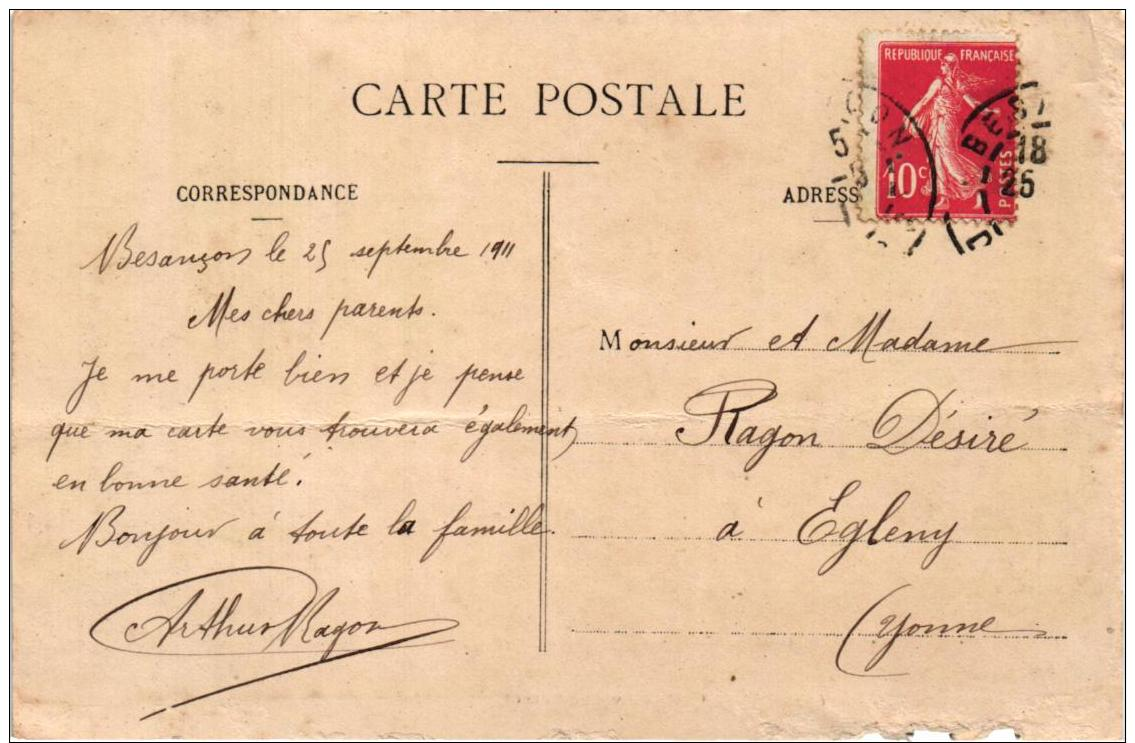 CARTE POSTALE
CORRESPONDANCE
Besançon le 25 septembre 1911
Mes chers parents.
Je me porte bien et je pense
que ma carte vous trouvera également
en bonne santé.
Bonjour à toute la famille.
Arthur Ragon
ADRESS
REPUBLIQUE FRANÇAISE
10 c
POSTES
18
25
Monsieur et Madame
Ragon Désiré
à Egleny
(Yonne